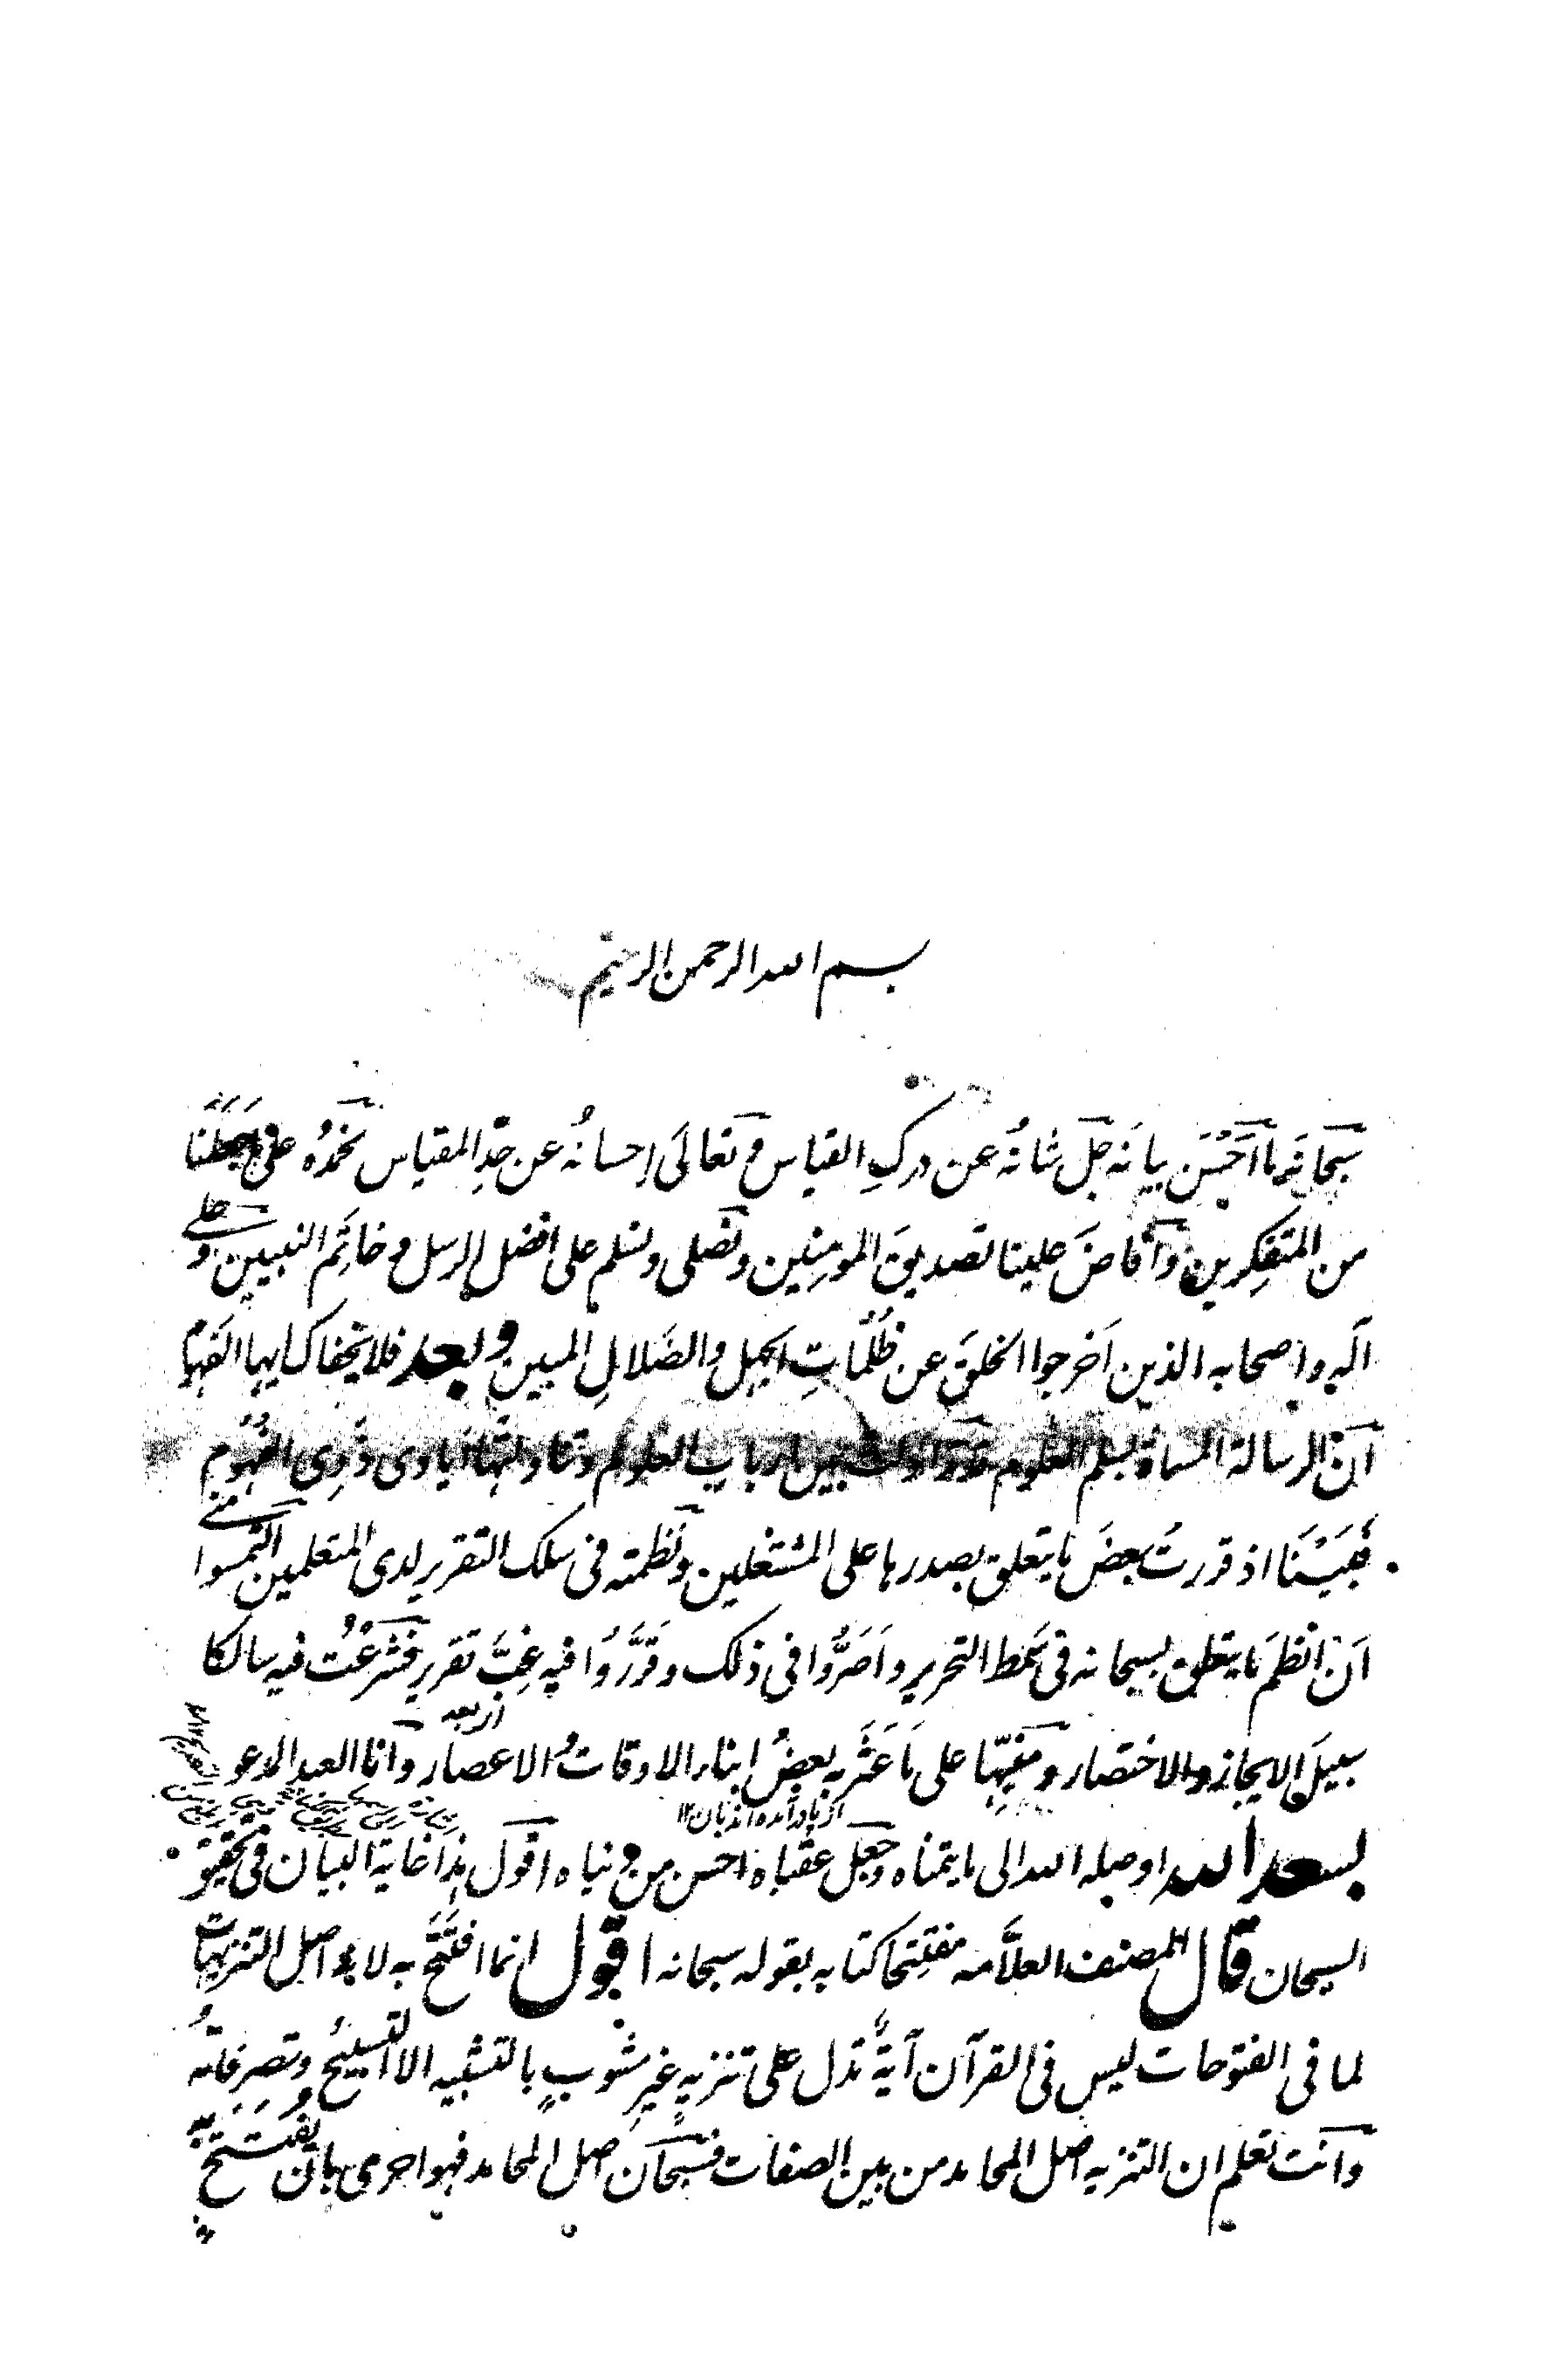 بسم الله الرحمن الرحيم
سبحانه ما أَحْسَنَ بيانَه جلّ شانُه عن دركِ القياس و تعالَى إحسانُه عن حدِّ المقياس نحمدُه على جعلنا
من المتفكِّرين وآفاضَ علينا تصديقَ المومِنين ونصلى ونسلم على افضل الرسل و خاتَم النبيين وعلى
آله واصحابه الذين اَخرجوا الخلقَ عن ظلُمَاتِ الجهل والضَلالِ المبين وبعد فلا يخفاك ايها الفهام
انّ الرسالة المسماة بسلم العلوم بين ارباب العلوم وتناولتها ايادى ذَوِى الفُهُوم
فبَيْنَا اذ قررتُ بعضَ ما يتعلق بصدرها على المشتغلين ونظمته فى سلك التقرير لدى المتعلمين التمسوا منى
اَن انظمَ ما يتعلق بسبحانه فى نمط التحرير و اَصَرُّوا فى ذلك و قرَّرُوا فيه غِبَّ تقرير فشرعْتُ فيه سالكا
سبيلَ الايجاز والاختصار ومنبِّها على ما عَثَر به بعضُ ابناء الاوقات والاعصار وآنا العبد المدعو
بسعد الله اوصله الله الى ما يتمناه وجعل عقباه احسن من دنياه اقول هذا غاية البيان فى تحقيق
السبحان قال المصنف العلاَّمه مفتِتحا كتابه بقوله سبحانه اقول انما افتَتَح به لانه اصل التنزيهات
لما فى الفتوحات ليس فى القرآن آيةٌ تدل على تنزيهٍ غيرِ مشوبٍ بالتشبيه الا التسبيحُ وتصرفاتُه
وآنت تعلم ان التنزيه اصل المحامد من بين الصفات فسبحان اصل المحامد فهو احرى بان يُفتتَح به